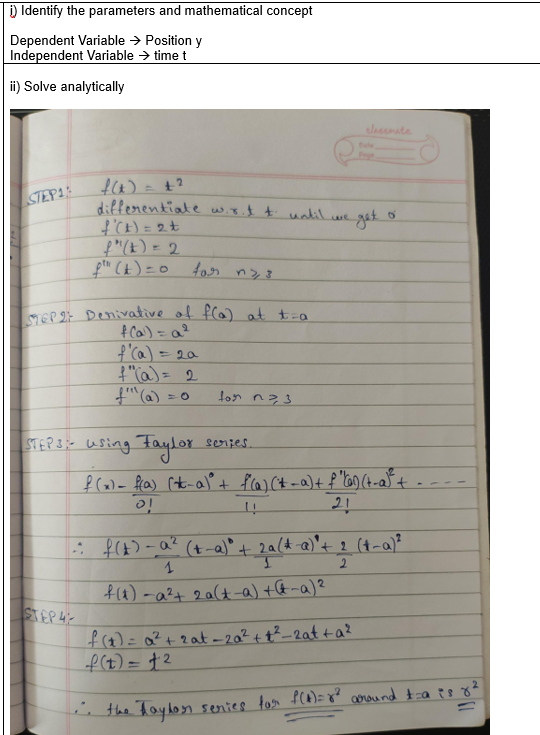 i) Identify the parameters and mathematical concept
Dependent Variable → Position y
Independent Variable → time t
ii) Solve analytically
classmate
Date
Page
STEP1:- f(t) = t²
differentiate w.r.t t. until we get 0
f'(t) = 2t
f''(t) = 2
f'''(t) = 0 for n ≥ 3
STEP 2:- Derivative of f(a) at t=a
f(a) = a²
f'(a) = 2a
f''(a) = 2
f'''(a) = 0 for n ≥ 3
STEP3:- using Taylor series.
f(x) - f(a)/0! (t-a)⁰ + f'(a)/1! (t-a) + f''(a)/2! (t-a)² + - - - -
∴ f(t) - a²/1 (t-a)⁰ + 2a/1 (t-a)¹ + 2/2 (t-a)²
f(t) - a² + 2a(t-a) + (t-a)²
STEP4:-
f(t) = a² + 2at - 2a² + t² - 2at + a²
f(t) = t²
∴ the Taylor series for f(t)=r² around t=a is r²